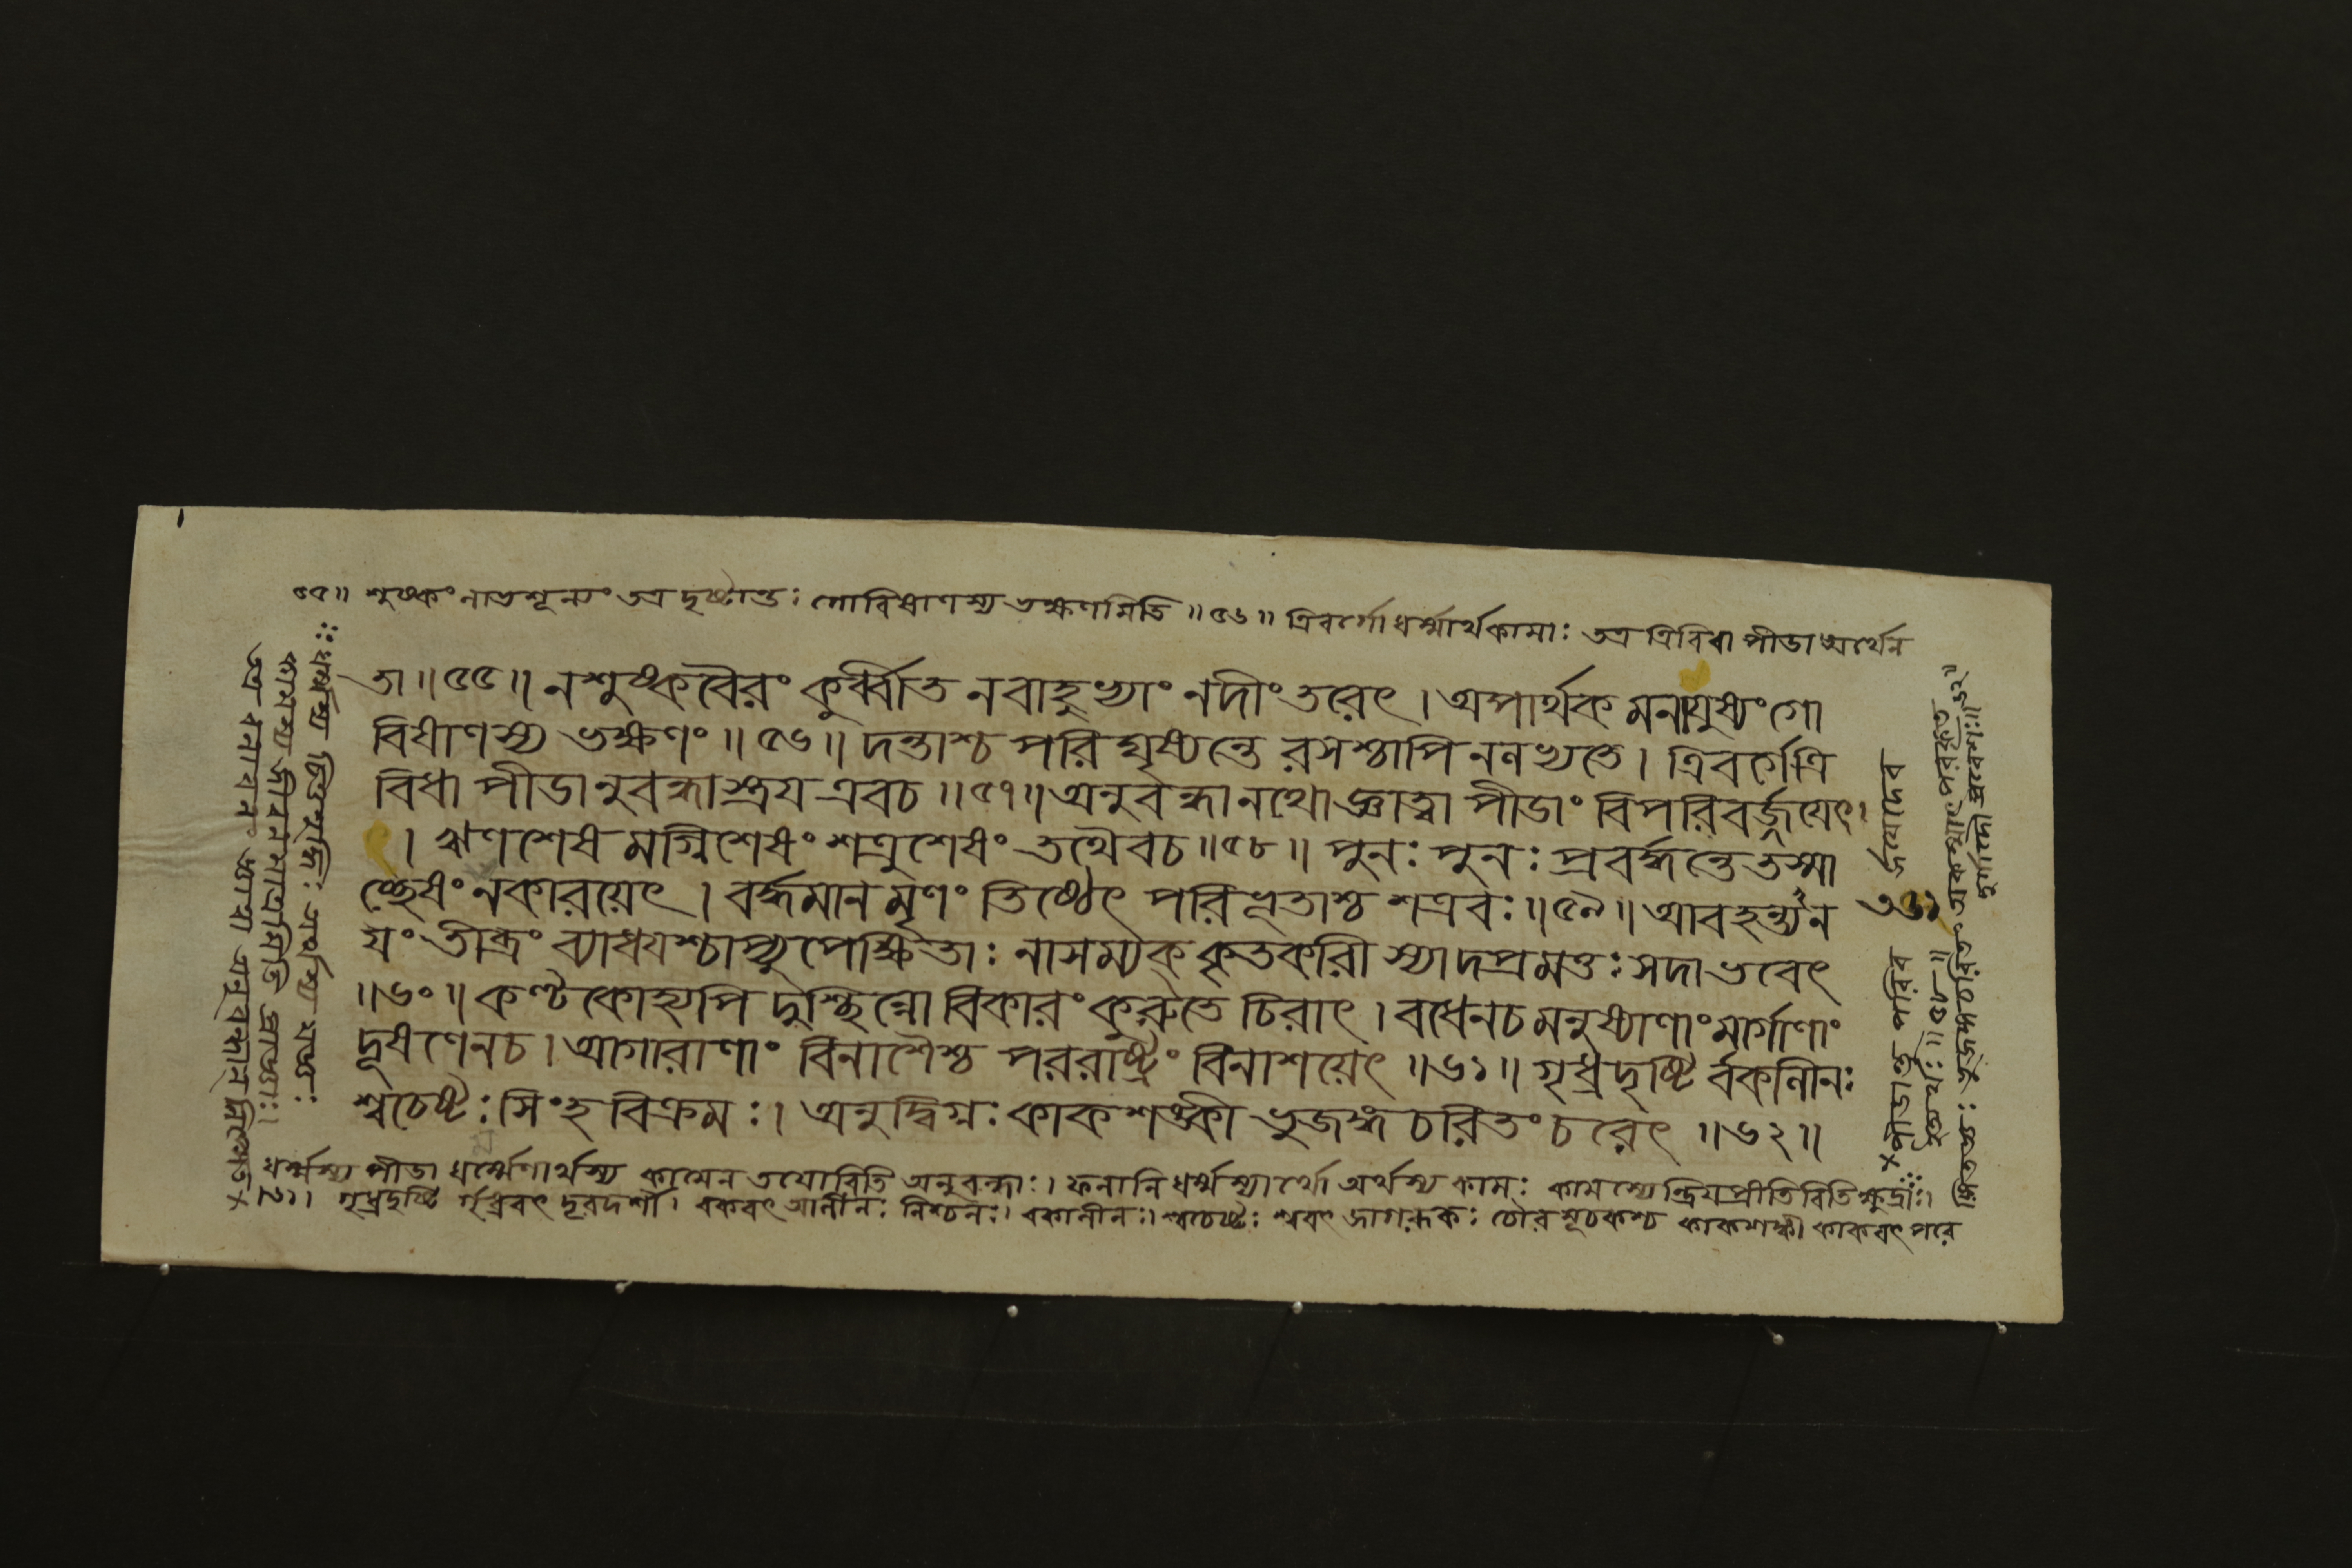 ৫৫॥ শুষ্কং লাভশূন্যং তত্র দৃষ্টান্তঃ গোবিষাণস্য ভক্ষণমিতি ॥৫৬॥ ত্রিবর্গো ধর্ম্মার্থকামাঃ তত্র ত্রিবিধা পীডা অর্থেন
তা ॥৫৫॥ ন শুষ্কবৈরং কুর্ব্বীত ন বাহুভ্যাং নদীং তরেৎ । অপার্থক মনাযুষ্যং গো
বিষাণস্য ভক্ষণং ॥৫৬॥ দন্তাশ্চ পরি ঘৃষ্যন্তে রসশ্চাপি ন লভ্যতে । ত্রিবর্গে ত্রি
বিধা পীডানুবন্ধাস্ত্রয এবচ ॥৫৭॥ অনুবন্ধানথো জ্ঞাত্বা পীডাং বিপরিবর্জ্জয়েৎ।
। ঋণশেষ মগ্নিশেষং শত্রুশেষং তথৈবচ ॥৫৮॥ পুনঃ পুনঃ প্রবর্দ্ধন্তে তস্মা
চ্ছেষং নকারয়েৎ । বর্দ্ধমান মৃণং তিষ্ঠেৎ পরিভূতাশ্চ শত্রবঃ ॥৫৯॥ আবহন্ত্যন
যং তীব্রং ব্যাধযশ্চাপ্যুপেক্ষিতাঃ নাসম্যক্ কৃতকারী স্যাদপ্রমত্তঃ সদা ভবেৎ
॥৬০॥ কণ্টকোহ্যপি দুশ্ছিন্নো বিকারং কুরুতে চিরাৎ । বধেনচ মনুষ্যাণাং মার্গাণাং
দূষণেনচ । আগারাণাং বিনাশৈশ্চ পররাষ্ট্রং বিনাশয়েৎ ॥৬১॥ গৃধ্রদৃষ্টি র্বকালীনঃ
শ্বচেষ্টঃ সিংহ বিক্রমঃ । অনুদ্বিগ্নঃ কাকশঙ্কী ভুজঙ্গ চরিতং চরেৎ ॥৬২॥
ধর্ম্মস্য পীডা ধর্ম্মেণার্থস্য কামেন তযোরিতি অনুবন্ধাঃ । ফলানি ধর্ম্মস্যার্থো অর্থস্য কামঃ কামস্যেন্দ্রিযপ্রীতিরিতি ক্ষুদ্রাঃ।
৬১। গৃধ্রদৃষ্টি র্গৃধ্রবৎ দূরদর্শী । বকবৎ আলীনঃ নিশ্চলঃ । বকালীনঃ । শ্বচেষ্টঃ শ্ববৎ জাগরূকঃ চৌরসূচকশ্চ কাকশঙ্কী কাকবৎ পরে
ধর্ম্মস্য চিত্তশুদ্ধিঃ অর্থস্য যজ্ঞঃ
কামস্য জীবনমাত্রমিতি প্রাজ্ঞাঃ।
জয়েদেব
৩৬১
পীডাস্তু পরিব
র্জ্জয়েঃ ॥৫৮॥
ঙ্গিতজ্ঞঃ ভুজঙ্গচরিতং অকস্মাৎ পরকৃত
দুর্গাদৌ প্রবেশঃ॥৬২॥